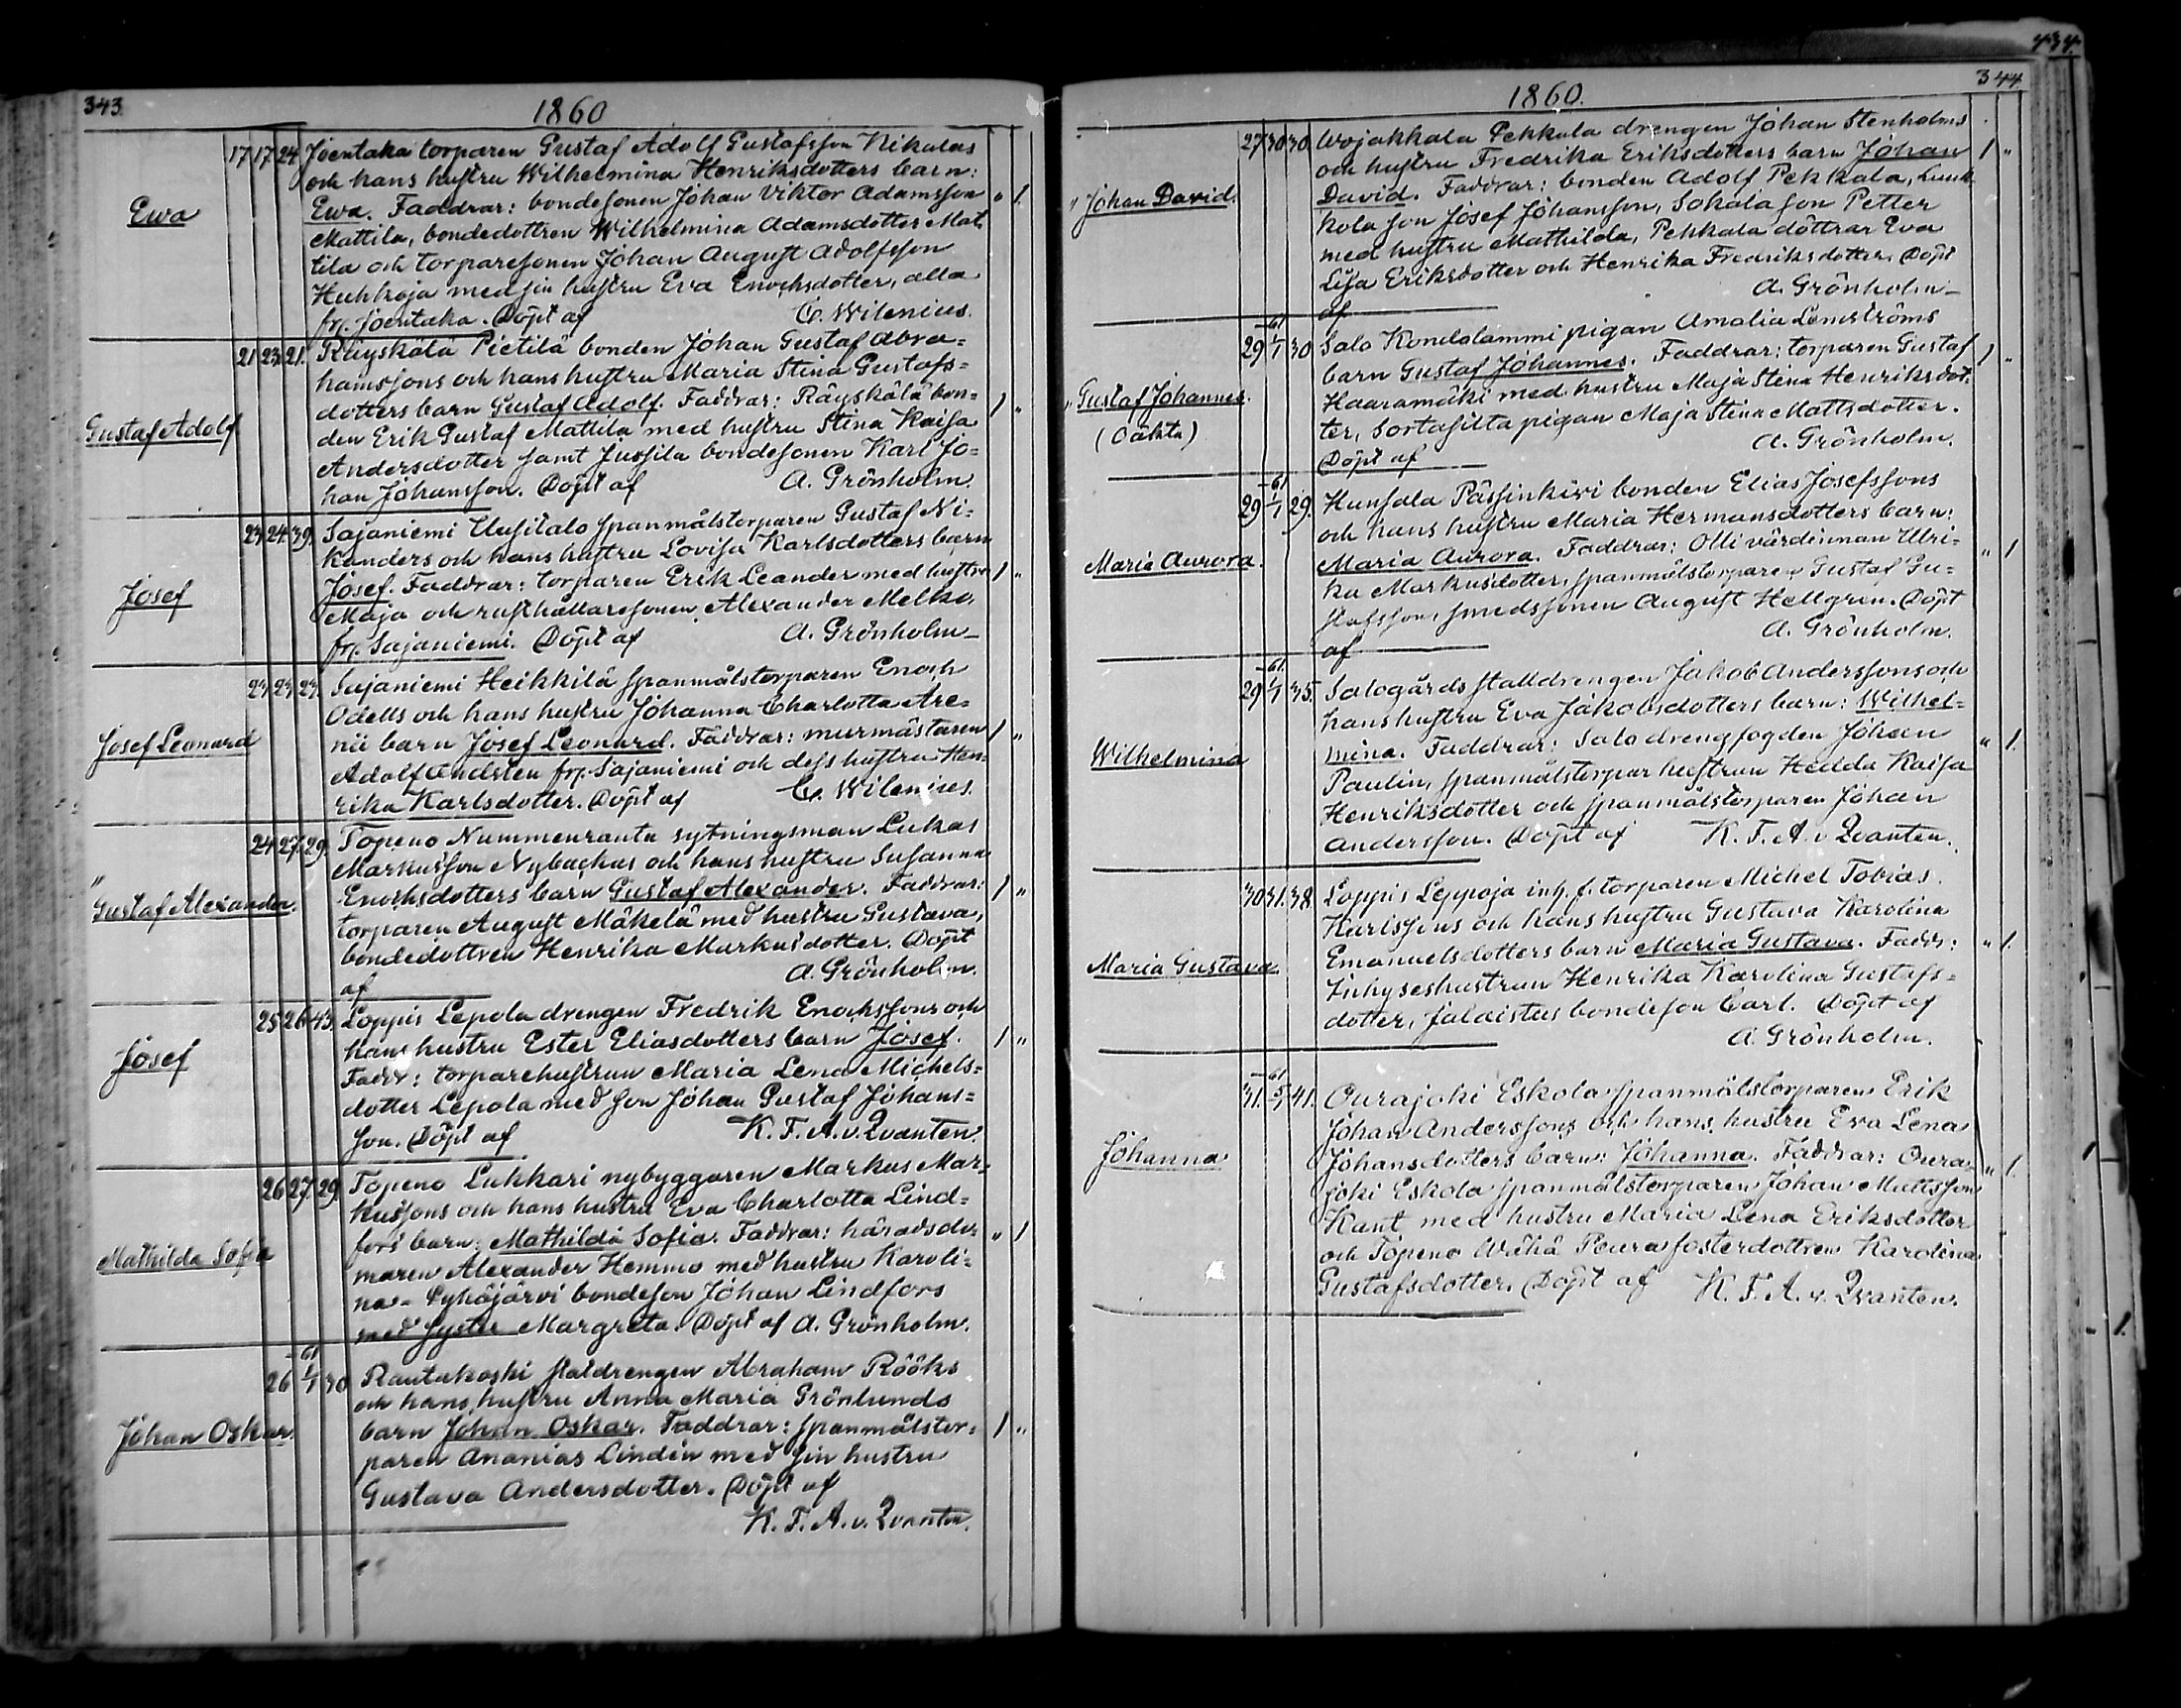 343
1860
17 17 24 Joentaka torparen Gustaf Adolf Gustafsson Nikalas
och hans hustru Wilhelmina Henriksdotters barn:
Ewa
Ewa. Faddrar: bondesonen Johan Viktor Adamsson " 1.
Mattila, bondedottren Wilhelmina Adamsdotter Mat
tila och torparesonen Johan August Adolfsson
Huhkoja med sin hustru Eva Enochsdotter, alla
frn. Joentaka. Döpt af C. Wilenius.
21 23 21. Räyskälä Pietilä bonden Johan Gustaf Abra=
hamssons och hans hustru Maria Stina Gustafs=
Gustaf Adolf
dotters barn Gustaf Adolf. Faddrar: Räyskälä bon= 1 "
den Erik Gustaf Mattila med hustru Stina Kaisa
Andersdotter samt Jussila bondesonen Karl Jo=
han Johansson. Döpt af A. Grönholm.
23 24 39. Sajaniemi Uusitalo spanmålstorparen Gustaf Ni=
kanders och hans hustru Lovisa Karlsdotters barn
Josef
Josef. Faddrar: torparen Erik Leander med hustru 1 "
Maja och rusthållaresonen Alexander Melko,
frn. Sajaniemi. Döpt af A. Grönholm_
23 23 23. Sajaniemi Heikkilä spanmålstorparen Enoch
Odells och hans hustru Johanna Charlotta Are=
Josef Leonard
nii barn Josef Leonard. Faddrar: murmästaren 1 "
Adolf Andsten frn. Sajaniemi och dess hustru Hen=
rika Karlsdotter. Döpt af C. Wilenius.
24 27 29. Topeno Nummenranta sytningsman Lukas
Markusson Nybackas och hans hustru Susanna
" Gustaf Alexander.
Enochsdotters barn Gustaf Alexander. Faddrar: 1 "
torparen August Mäkelä med hustru Gustava,
bondedottren Henrika Markusdotter. Döpt
af A. Grönholm.
25 26 43. Loppis Lepola drengen Fredrik Enochssons och
Josef
hans hustru Ester Eliasdotters barn Josef. 1 "
Faddr: torparehustrun Maria Lena Michels=
dotter Lepola med son Johan Gustaf Johans=
son. Döpt af K. F. A. v. Qvanten.
26 27 29 Topeno Lukkari nybyggaren Markus Mar=
kussons och hans hustru Eva Charlotta Lind=
Mathilda Sofia
fors barn: Mathilda Sofia. Faddrar: häradsdo= " 1
maren Alexander Hemmo med hustru Karoli=
na - Pyhäjärvi bondeson Johan Lindfors
med syster Margreta. Döpt af A. Grönholm.
-61
26 1/1 30 Rautakoski staldrengen Abraham Rööks
och hans hustru Anna Maria Grönlunds
Johan Oskar.
barn Johan Oskar. Faddrar: spanmålstor= 1 "
paren Ananias Lindén med sin hustru
Gustava Andersdotter. Döpt af
K. F. A. v. Qvanten.
434.
344
1860.
27 30 30. Wojakkala Pekkala drengen Johan Stenholms
och hustru Fredrika Eriksdotters barn Johan 1 "
" Johan David.
David. Faddrar: bonden Adolf Pekkala, Luuk
kola son Josef Johansson, Sokala son Petter
med hustru Mathilda, Pekkala döttrar Eva
Lisa Eriksdotter och Henrika Fredriksdotter. Döpt
af A. Grönholm_
-61
29 1/1 30 Salo Kondolammi pigan Amalia Lemströms
" Gustaf Johannes.
(Oäkta)
barn Gustaf Johannes. Faddrar: torparen Gustaf 1 "
Haaramäki med hustru Maja Stina Henriksdot=
ter, Sortasilta pigan Maja Stina Mattsdotter.
Döpt af A. Grönholm.
-61
29 1/1 29. Hunsala Pässinkivi bonden Elias Josefssons
och hans hustru Maria Hermansdotters barn:
Maria Aurora.
Maria Aurora. Faddrar: Olli värdinnan Ulri= " 1
ka Markusdotter, spanmålstorparen Gustaf Gu=
stafsson, smedssonen August Hellgren. Döpt
af A. Grönholm.
-61.
29 1/1 35. Salogårds stalldrengen Jakob Anderssons och
hans hustru Eva Jakobsdotters barn: Wilhel=
Wilhelmina
mina. Faddrar: Salo drengfogden Johan " 1.
Paulin, spanmålstorpar hustrun Hedda Kaisa
Henriksdotter och spanmålstorparen Johan
Andersson. Döpt af K. F. A. v Qvanten.
30 31. 38. Loppis Leppoja inh. f. torparen Michel Tobias
Karlssons och hans hustru Gustava Karolina
Maria Gustava.
Emanuelsdotters barn Maria Gustava. Faddr: " 1.
Inhyseshustrun Henrika Karolina Gustafs=
dotter, Jalaistus bondeson Carl. Döpt af
A. Grönholm.
-61
31. 5/1 41. Ourajoki Eskola spanmålstorparen Erik
Johan Anderssons och hans hustru Eva Lena
Johanna
Johansdotters barn: Johanna. Faddrar: Oura= " 1.
joki Eskola spanmålstorparen Johan Mattsson
Kant med hustru Maria Lena Eriksdotter
och Topeno Wähä Peura fosterdottren Karolina
Gustafsdotter. Döpt af K. F. A. v. Qvanten.
" 1.